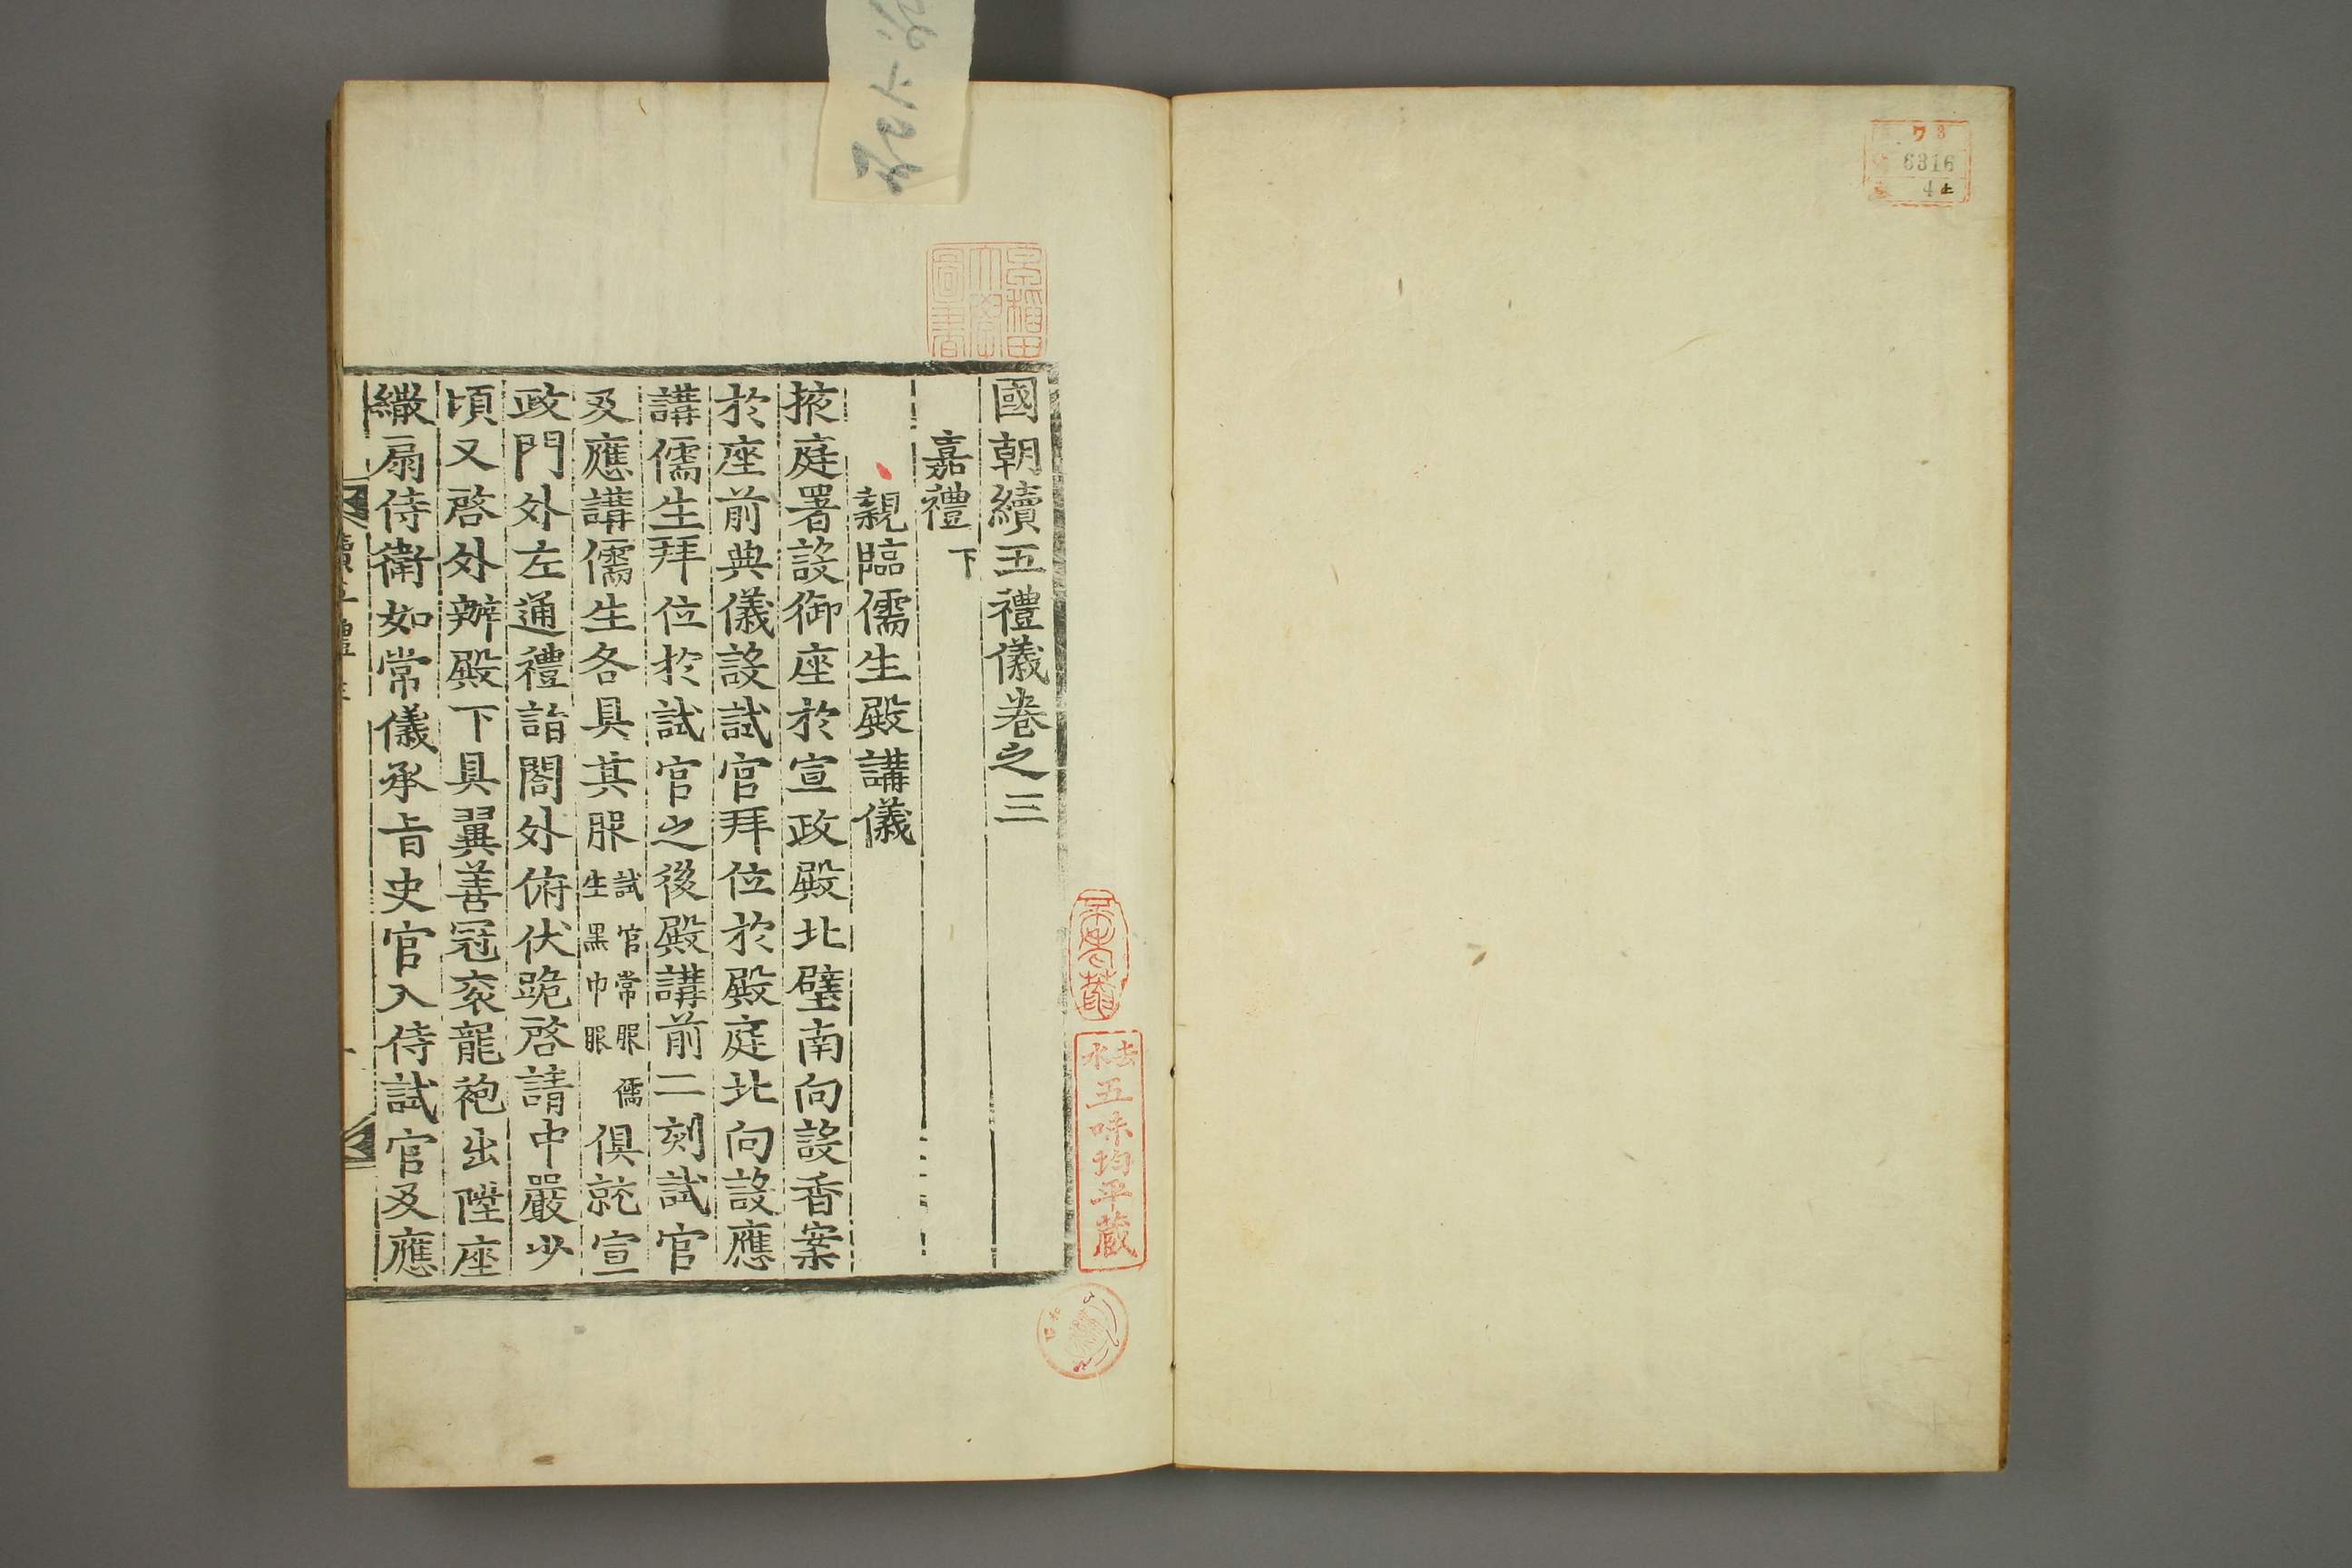 ワ 3
6316
4 上
國朝續五禮儀卷之三
嘉禮 下
親臨儒生殿講儀
掖庭署設御座於宣政殿北壁南向設香案
於座前典儀設試官拜位於殿庭北向設應
講儒生拜位於試官之後殿講前二刻試官
及應講儒生各具其服 試官常服 儒
生黑巾服 俱就宣
政門外左通禮詣閤外俯伏跪啓請中嚴少
頃又啓外辦殿下具翼善冠衮龍袍出陞座
繖扇侍衛如常儀承旨史官入侍試官及應
早稻田
大學
圖書
五味均平藏